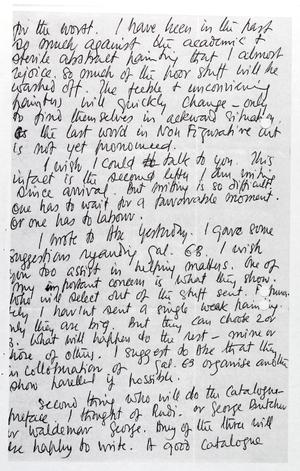 for the worst. I have been in the past
so much against the academic &
sterile abstract painting that I almost
rejoice. So much of the poor stuff will be
washed off. The feeble & unconvincing
painters will quickly change – only
to find themselves in aekward situation,
as the last word in Non Figurative art
is not yet pronounced.
I wish I could talk to you. This
infact is the second letter I am writing
since arrival. But writing is so difficult
one has to wait for a favourable moment.
or one has to labour.
I wrote to Abe yesterday. I gave some
suggestions regarding Gal. 63. I wish
you too assist in helping matters. One of
my important concern is what they show.
Who will select out of the stuff sent.
I havint sent a single weak painting.
only they are big. But they can choose 2 or
3. What will happen to the rest – mine or
those of others. I suggest to Abe that they
in collaboration of Gal 63 organise another
show parellel if possible.
Second thing who will do the Catalogue
preface. I thought of Rudi. or George Butcher
or Waldemar George. Any of the three will
be happy to write. A good Catalogue